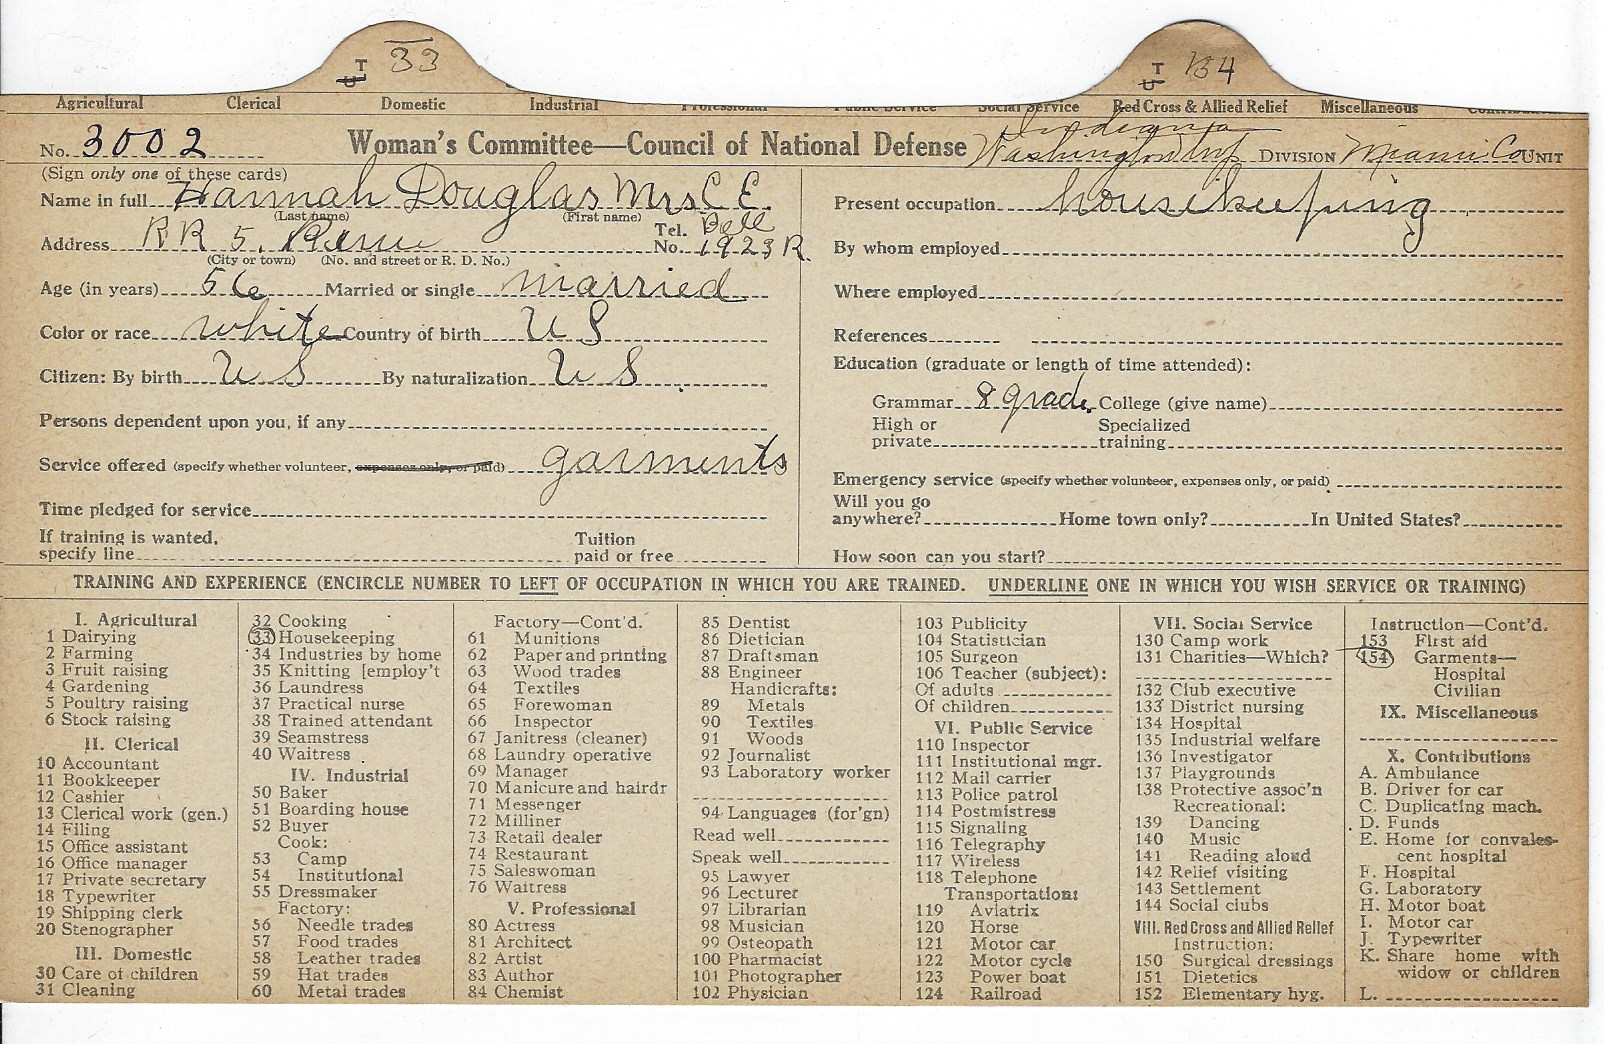 T 33 T 154
U U
Agricultural Clerical Domestic Industrial Professional Public Service Social Service Red Cross & Allied Relief Miscellaneous
Indiana
No. 3002 Woman's Committee—Council of National Defense Washington Twp DIVISION Miami Co UNIT
(Sign only one of these cards)
Name in full Hannah Douglas Mrs C. E.
(Last name) (First name)
Address R R 5. Peru Tel. No. Bell 1923 R.
(City or town) (No. and street or R. D. No.)
Age (in years) 56 Married or single married
Color or race white Country of birth U S
Citizen: By birth U S By naturalization U S
Persons dependent upon you, if any
Service offered (specify whether volunteer, expenses only, or paid) garments
Time pledged for service
If training is wanted, specify line Tuition paid or free
Present occupation housikeeping
By whom employed
Where employed
References
Education (graduate or length of time attended):
Grammar 8 grade College (give name)
High or private Specialized training
Emergency service (specify whether volunteer, expenses only, or paid)
Will you go anywhere? Home town only? In United States?
How soon can you start?
TRAINING AND EXPERIENCE (ENCIRCLE NUMBER TO LEFT OF OCCUPATION IN WHICH YOU ARE TRAINED. UNDERLINE ONE IN WHICH YOU WISH SERVICE OR TRAINING)
I. Agricultural
1 Dairying
2 Farming
3 Fruit raising
4 Gardening
5 Poultry raising
6 Stock raising
II. Clerical
10 Accountant
11 Bookkeeper
12 Cashier
13 Clerical work (gen.)
14 Filing
15 Office assistant
16 Office manager
17 Private secretary
18 Typewriter
19 Shipping clerk
20 Stenographer
III. Domestic
30 Care of children
31 Cleaning
32 Cooking
33 Housekeeping
34 Industries by home
35 Knitting [employ't
36 Laundress
37 Practical nurse
38 Trained attendant
39 Seamstress
40 Waitress
IV. Industrial
50 Baker
51 Boarding house
52 Buyer
Cook:
53 Camp
54 Institutional
55 Dressmaker
Factory:
56 Needle trades
57 Food trades
58 Leather trades
59 Hat trades
60 Metal trades
Factory—Cont'd.
61 Munitions
62 Paper and printing
63 Wood trades
64 Textiles
65 Forewoman
66 Inspector
67 Janitress (cleaner)
68 Laundry operative
69 Manager
70 Manicure and hairdr
71 Messenger
72 Milliner
73 Retail dealer
74 Restaurant
75 Saleswoman
76 Waitress
V. Professional
80 Actress
81 Architect
82 Artist
83 Author
84 Chemist
85 Dentist
86 Dietician
87 Draftsman
88 Engineer
Handicrafts:
89 Metals
90 Textiles
91 Woods
92 Journalist
93 Laboratory worker
94 Languages (for'gn)
Read well
Speak well
95 Lawyer
96 Lecturer
97 Librarian
98 Musician
99 Osteopath
100 Pharmacist
101 Photographer
102 Physician
103 Publicity
104 Statistician
105 Surgeon
106 Teacher (subject):
Of adults
Of children
VI. Public Service
110 Inspector
111 Institutional mgr.
112 Mail carrier
113 Police patrol
114 Postmistress
115 Signaling
116 Telegraphy
117 Wireless
118 Telephone
Transportation:
119 Aviatrix
120 Horse
121 Motor car
122 Motor cycle
123 Power boat
124 Railroad
VII. Social Service
130 Camp work
131 Charities—Which?
132 Club executive
133 District nursing
134 Hospital
135 Industrial welfare
136 Investigator
137 Playgrounds
138 Protective assoc'n
Recreational:
139 Dancing
140 Music
141 Reading aloud
142 Relief visiting
143 Settlement
144 Social clubs
VIII. Red Cross and Allied Relief
Instruction:
150 Surgical dressings
151 Dietetics
152 Elementary hyg.
Instruction—Cont'd.
153 First aid
154 Garments—
Hospital
Civilian
IX. Miscellaneous
X. Contributions
A. Ambulance
B. Driver for car
C. Duplicating mach.
D. Funds
E. Home for convales-
cent hospital
F. Hospital
G. Laboratory
H. Motor boat
I. Motor car
J. Typewriter
K. Share home with
widow or children
L.